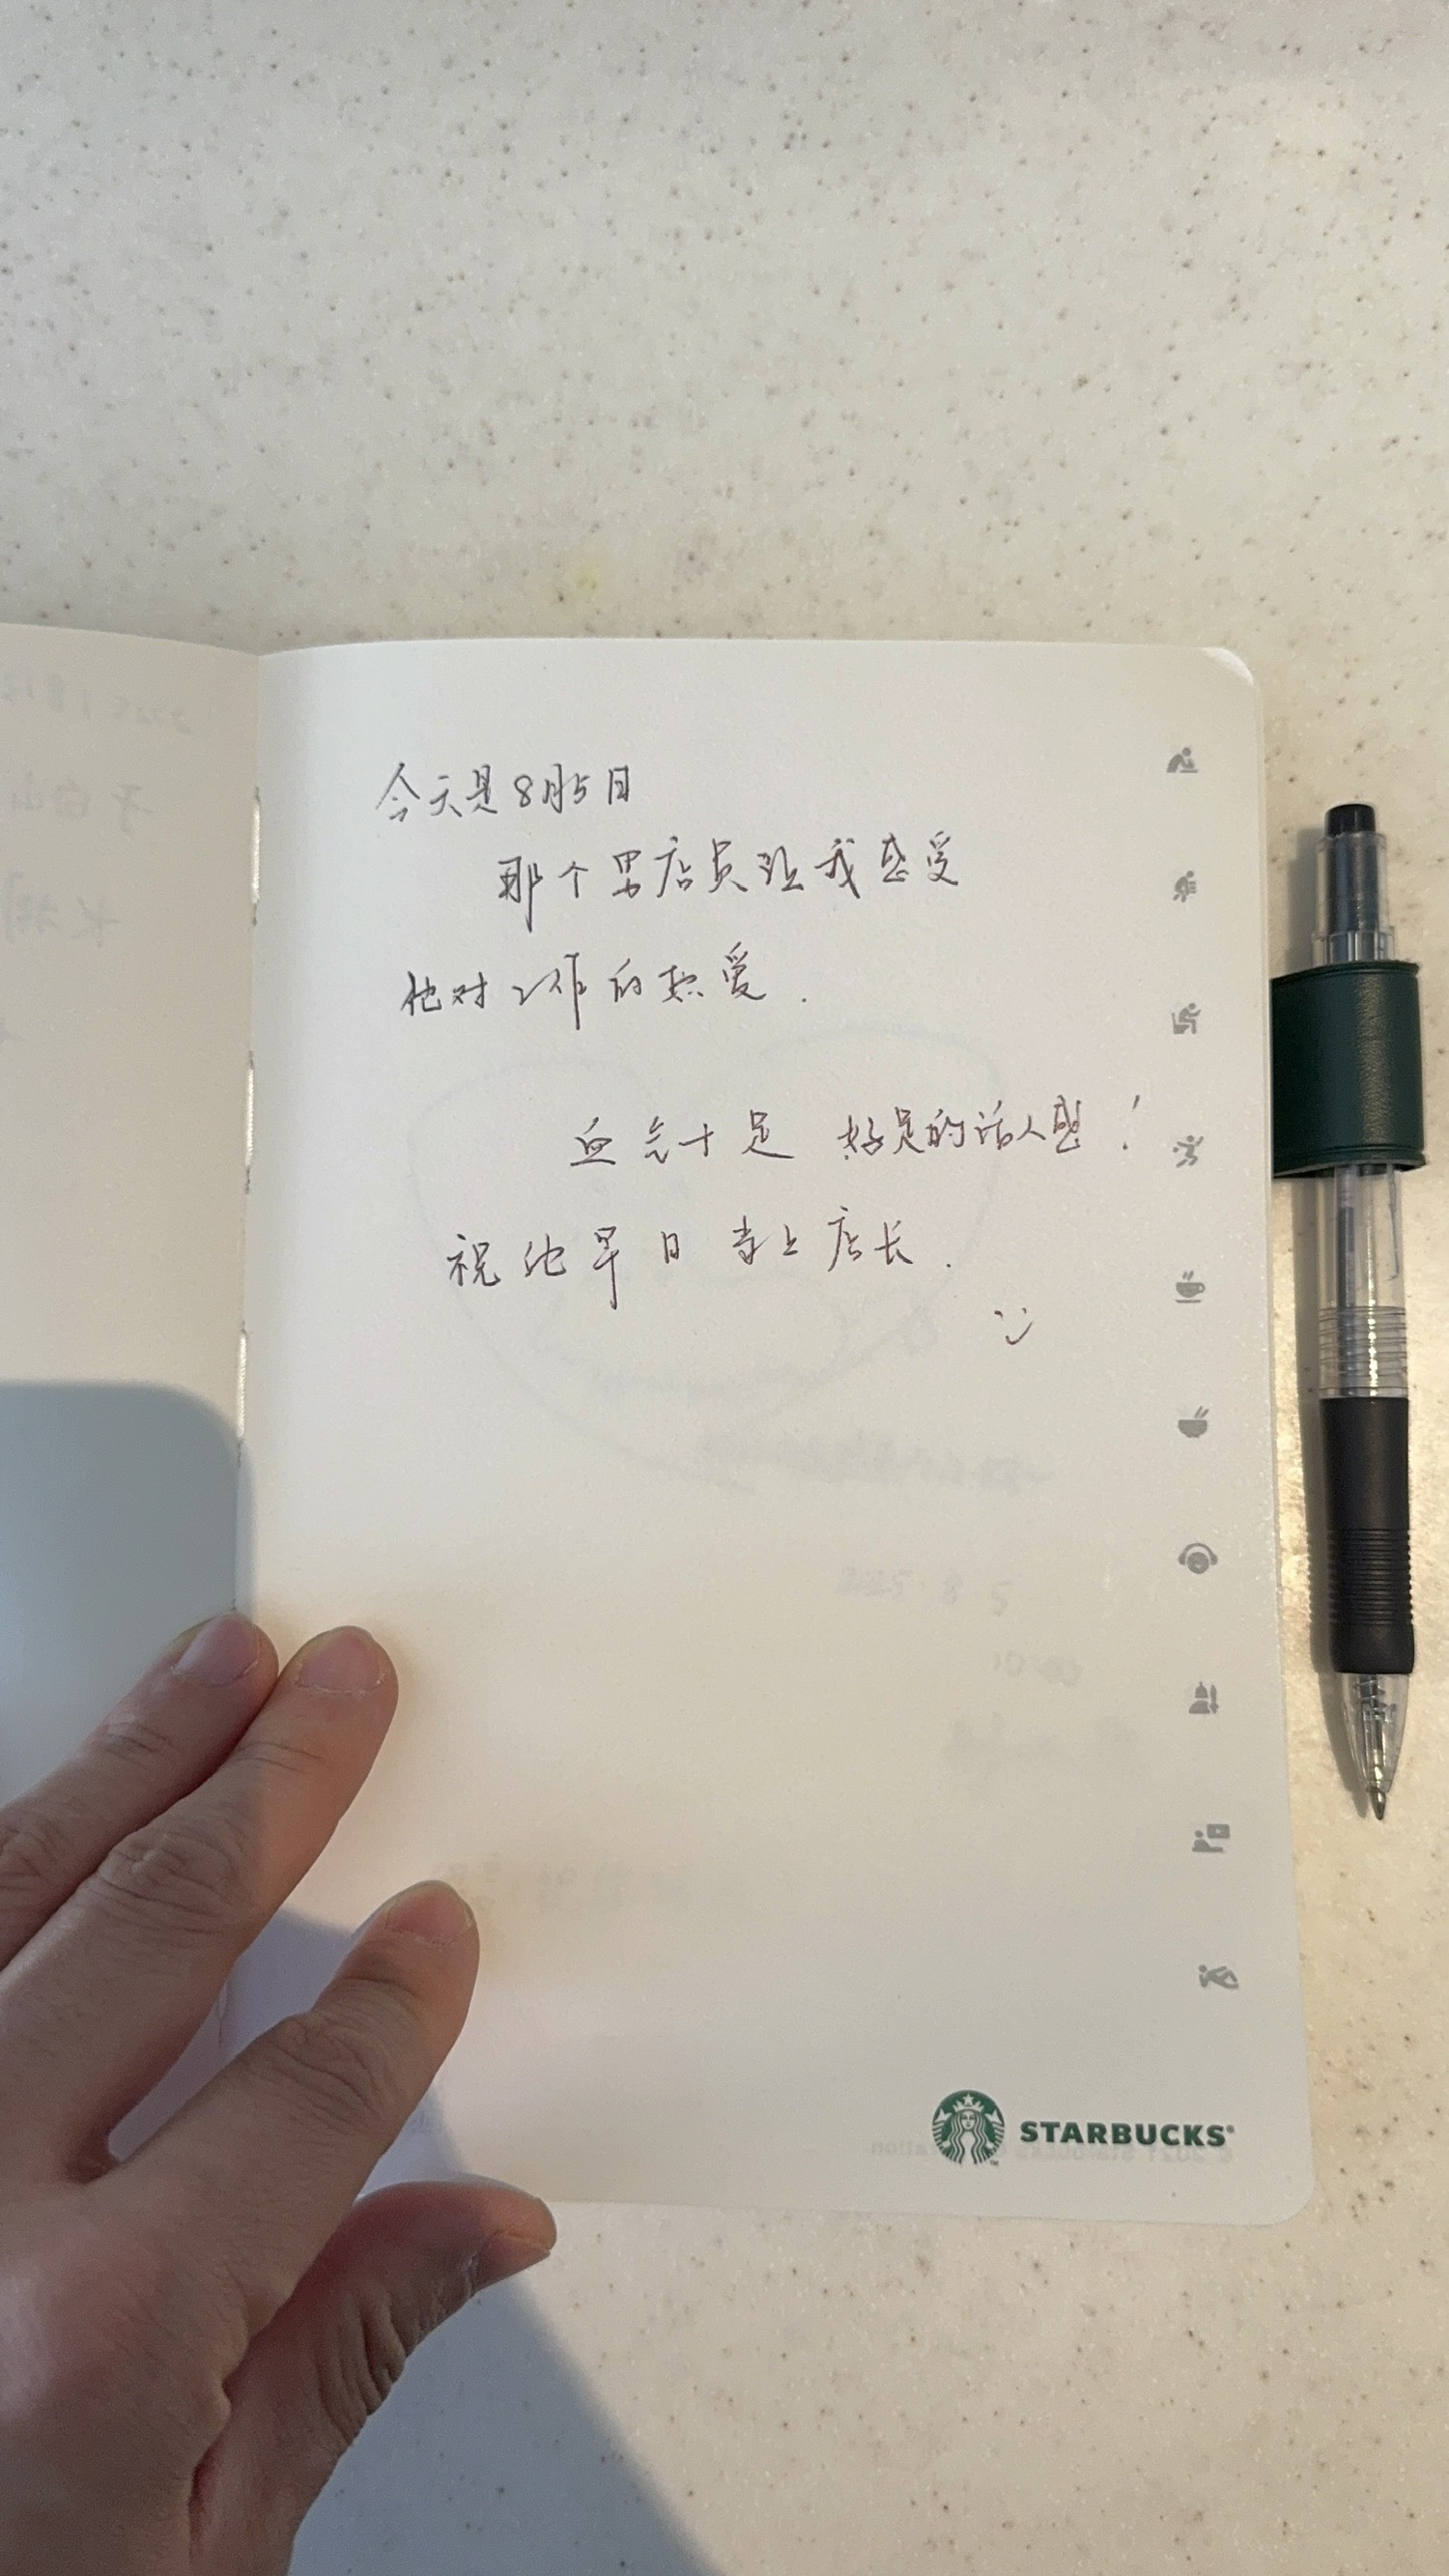 今天是8月5日
那个男店员让我感受
他对工作的热爱.
血气十足 好足的活人感!
祝他早日当上店长.
STARBUCKS